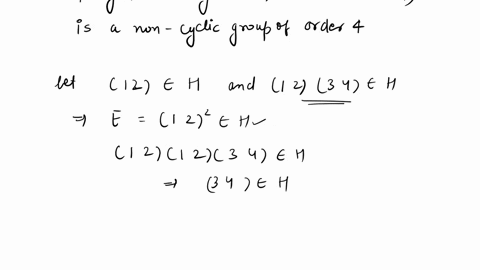 is a non-cyclic group of order 4
let (1 2) ∈ H and (1 2) (3 4) ∈ H
⇒ E = (1 2)² ∈ H ✓
(1 2) (1 2) (3 4) ∈ H
⇒ (3 4) ∈ H